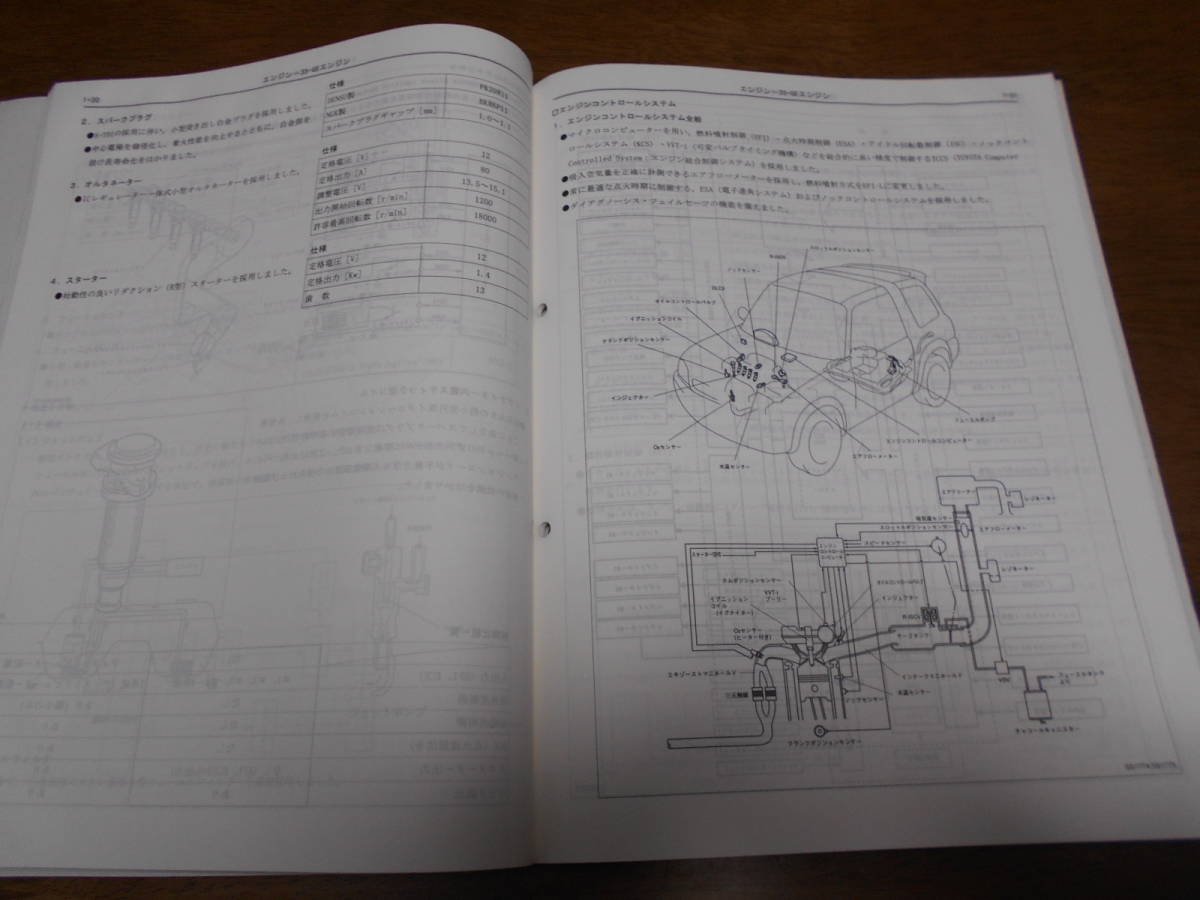 1-20
エンジン－3S-GEエンジン
2. スパークプラグ
●中心電極を細径化し、着火性能を向上させるとともに、白金径を
設け長寿命化をはかりました。
仕様
DENSO製
NGK製
スパークプラグギャップ [mm]
1.0〜1.1
3. オルタネーター
●ICレギュレーター一体式小型オルタネーターを採用しました。
仕様
定格電圧 [V]
12
定格出力 [A]
80
調整電圧 [V]
13.5〜15.1
出力開始回転数 [r/min]
1200
許容最高回転数 [r/min]
18000
4. スターター
●始動性の良いリダクション (R型) スターターを採用しました。
仕様
定格電圧 [V]
12
定格出力 [Kw]
1.4
歯 数
13
□エンジンコントロールシステム
1. エンジンコントロールシステム全般
●マイクロコンピューターを用い、燃料噴射制御 (EFI)・点火時期制御 (ESA)・アイドル回転数制御 (ISC)・ノックコント
ロールシステム (KCS)・VVT-i (可変バルブタイミング機構) などを総合的に高い精度で制御するTCCS (TOYOTA Computer
Controlled System : エンジン総合制御システム) を採用しました。
●吸入空気量を正確に計測できるエアフローメーターを採用し、燃料噴射方式をEFI-Lに変更しました。
●常に最適な点火時期に制御する、ESA (電子進角システム) およびノックコントロールシステムを採用しました。
●ダイアグノーシス・フェイルセーフの機能を備えました。
スロットルポジションセンサー
ノックセンサー
DLC3
オイルコントロールバルブ
イグニッションコイル
インジェクター
O₂センサー
水温センサー
エアフローメーター
エンジンコントロールコンピューター
フューエルポンプ
エアクリーナー
レゾネーター
吸気温センサー
スロットルポジションセンサー
エアフローメーター
エンジン
コントロール
コンピュータ
スピードセンサー
スターター信号
レゾネーター
カムポジションセンサー
オイルコントロールバルブ
イグニッション
コイル
(イグナイター)
VVT-i
プーリー
インジェクター
O₂センサー
(ヒーター付き)
サージタンク
エキゾーストマニホールド
インテークマニホールド
VSV
フューエルタンク
より
三元触媒
ノックセンサー
水温センサー
チャコールキャニスター
クランクポジションセンサー